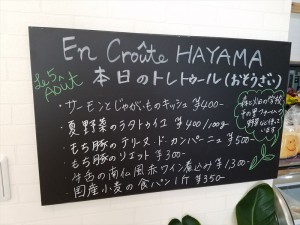 En Croûte HAYAMA
le 5 Août
本日のトレトゥール(おそうざい)
・サーモンとじゃがいものキッシュ ¥400-
・夏野菜のラタトゥイユ ¥400/100g
・もち豚のテリーヌ・ド・カンパーニュ ¥500-
・もち豚のリエット ¥300-
・牛舌の南仏風赤ワイン煮込み ¥1300-
・国産小麦の食パン1斤 ¥350-
野菜
います